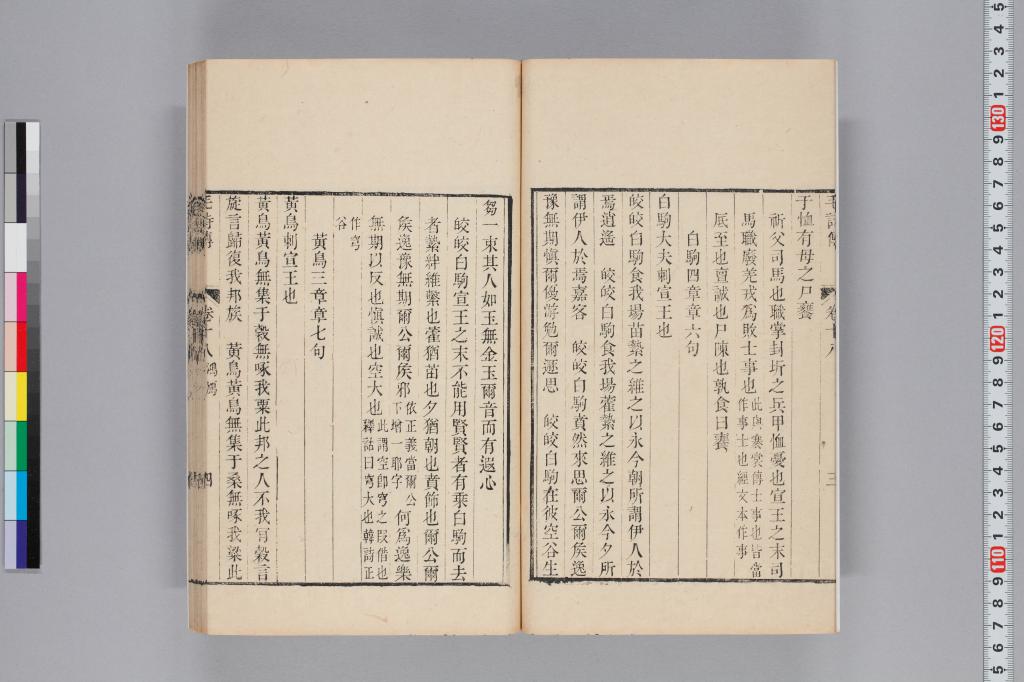 毛詩傳 卷十八 三
子恤有母之尸饔
祈父司馬也職掌封圻之兵甲恤憂也宣王之末司
馬職廢羌戎為敗士事也此與褰裳傳士事也皆當作事士也經文本作事
厎至也亶誠也尸陳也孰食曰饔
白駒四章章六句
白駒大夫刺宣王也
皎皎白駒食我場苗縶之維之以永今朝所謂伊人於
焉逍遙 皎皎白駒食我場藿縶之維之以永今夕所
謂伊人於焉嘉客 皎皎白駒賁然來思爾公爾矦逸
豫無期愼爾優游勉爾遯思 皎皎白駒在彼空谷生
芻一束其人如玉無金玉爾音而有遐心
皎皎白駒宣王之末不能用賢賢者有乘白駒而去
者縶絆維繫也藿猶苗也夕猶朝也賁飾也爾公爾
矦逸豫無期爾公爾矦邪依正義當爾公下增一耶字何爲逸樂
無期以反也愼誠也空大也此謂空卽穹之叚借也釋詁曰穹大也韓詩正
作穹谷
黃鳥三章章七句
黃鳥刺宣王也
黃鳥黃鳥無集于榖無啄我粟此邦之人不我肎穀言
旋言歸復我邦族 黃鳥黃鳥無集于桑無啄我粱此
毛詩傳 卷十八 鴻鴈 四
5
4
3
2
1
130
9
8
7
6
5
4
3
2
1
120
9
8
7
6
5
4
3
2
1
110
9
8
7
6
5